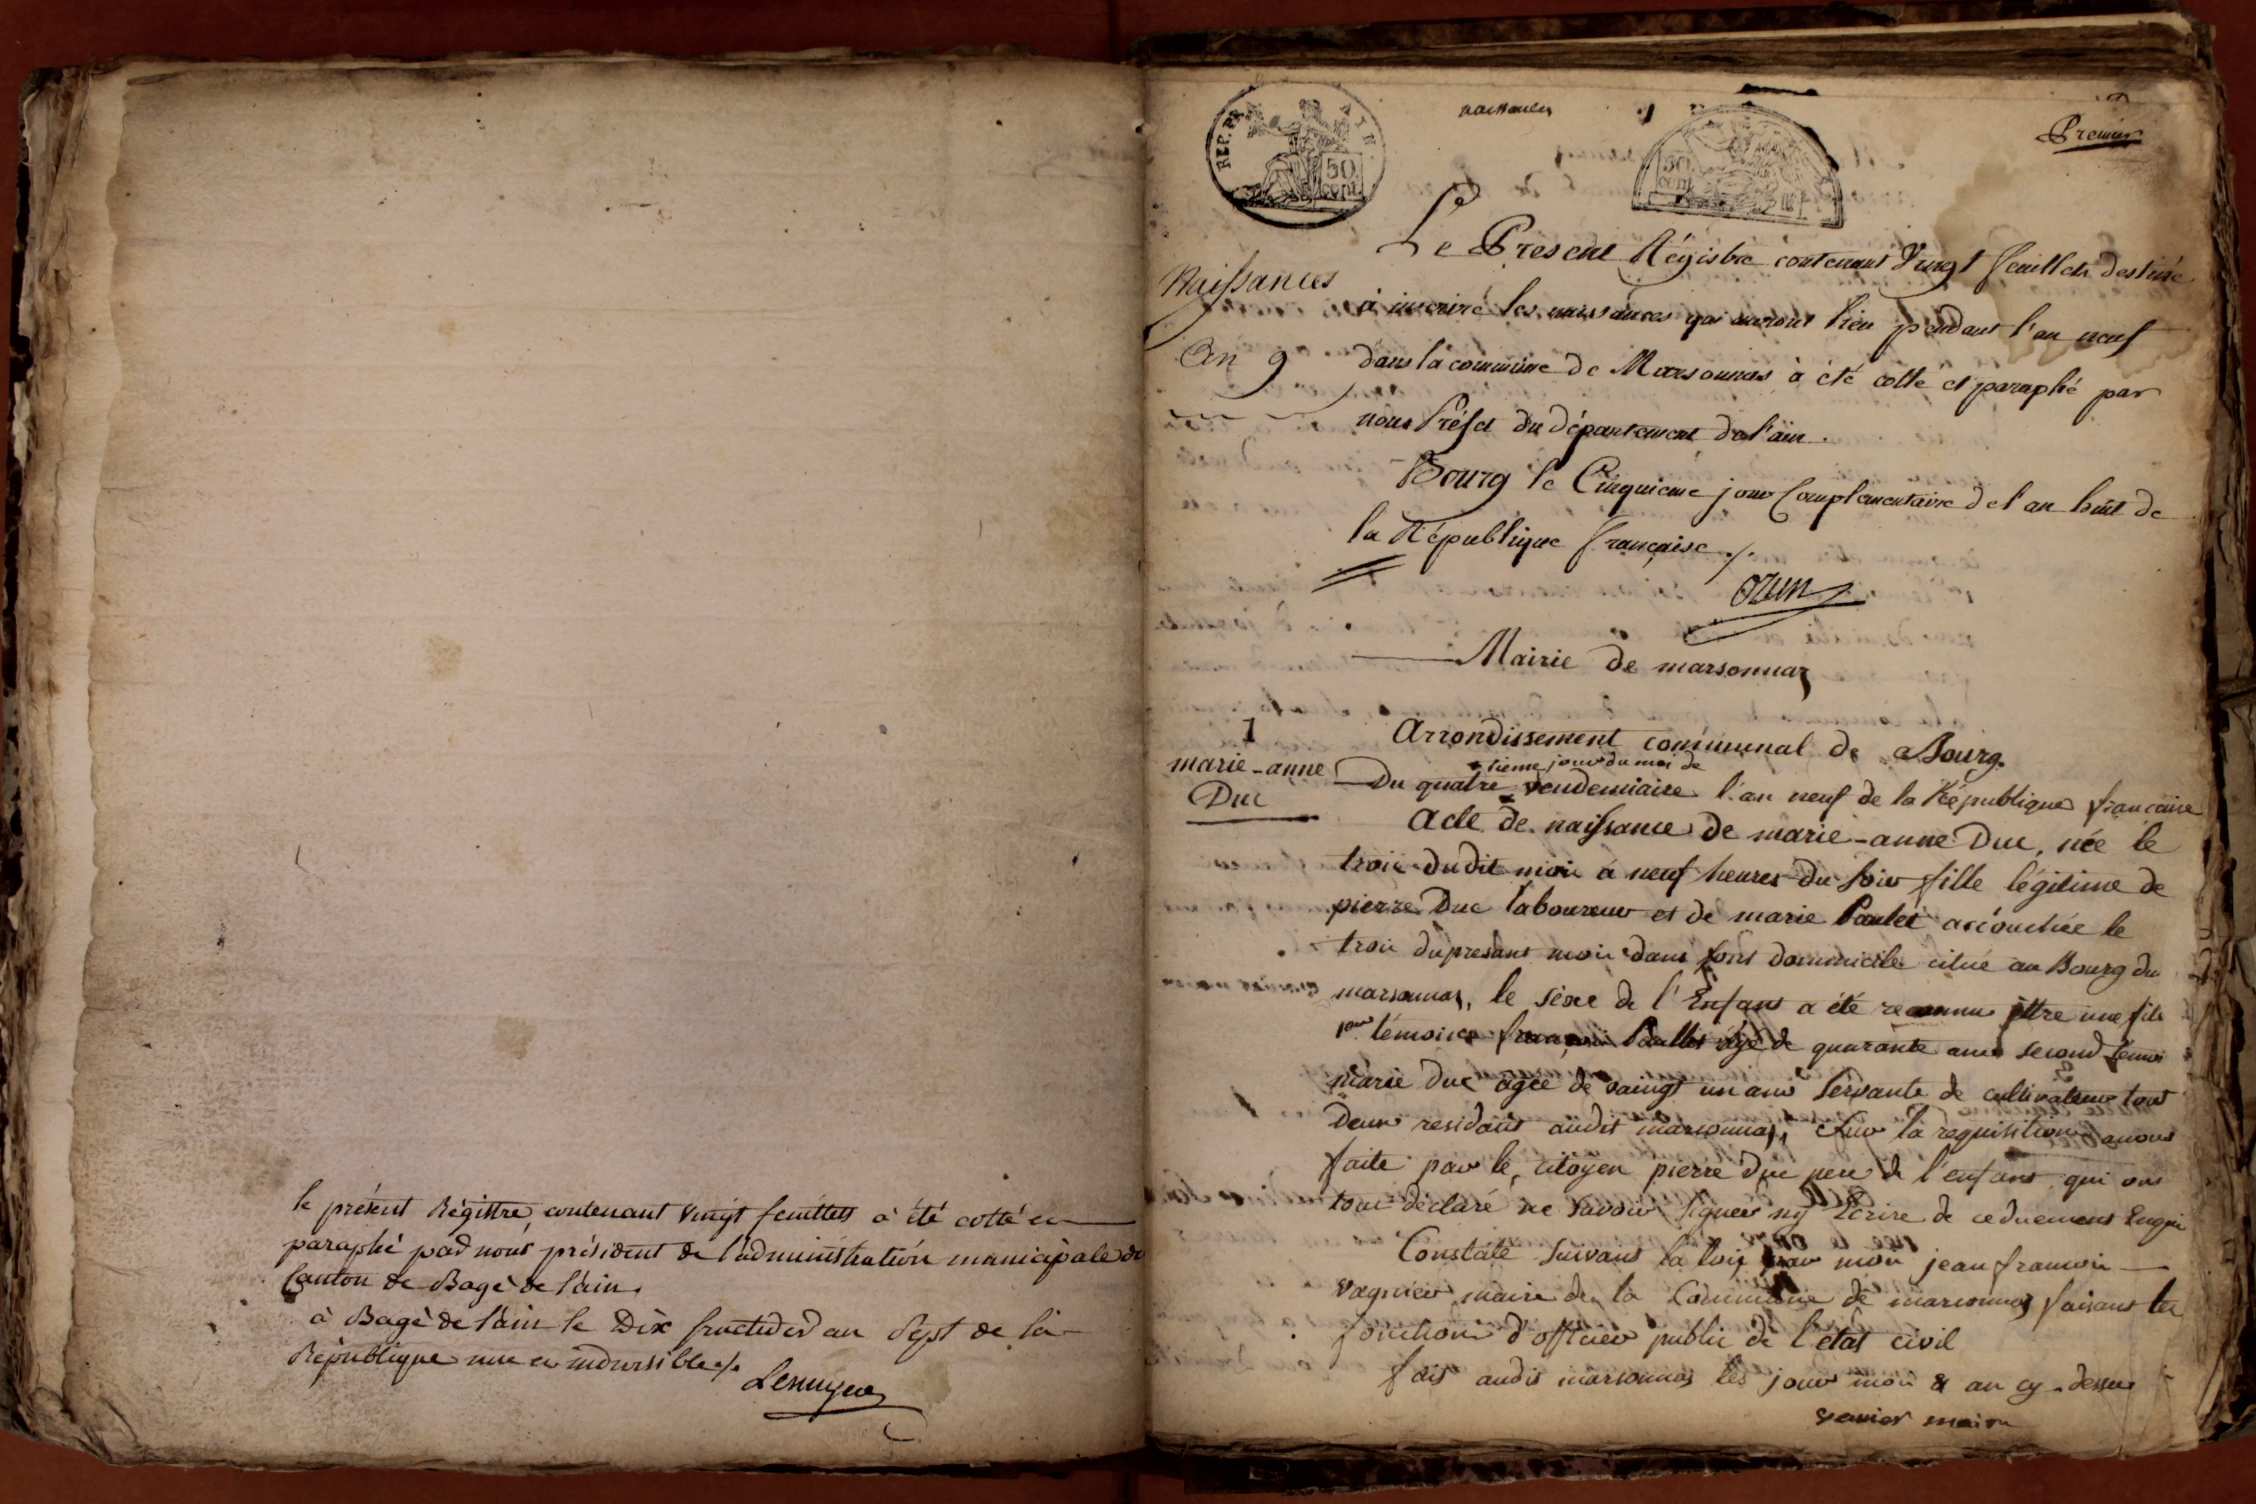 le présent Régistre, contenant vingt feuillets a été cotté et
paraphé par nous président de l'administration municipale du
Canton de Bagé de l'ain.
à Bagé de l'ain le Dix fructidor an Sept de la
République une et indivisible
naissances
REP. FRA
50
cent.
50
cent.
Premier
Le Present Régistre contenant Vingt feuillets destiné
Naissances
à inscrire les naissances qui auront lieu pendant l'an neuf
An 9
dans la commune de Marsonnas à été cotté et paraphé par
nous Préfet du département de l'ain.
Bourg le Cinquieme jour Complementaire de l'an huit de
la République française ./.
ozun
Mairie de marsonnas
Arrondissement communal de Bourg.
1
marie-anne
Duc
sieme jour du moi de
Du quatre vendemiaire l'an neuf de la République francaise
Acte de naissance de marie-anne Duc, née le
trois dudit mois à neuf heures du soir fille légitime de
pierre Duc laboureur et de marie Paulet accouchée le
trois du presant mois dans sont dommicile citué au Bourg du
marsonnas, le sexe de l'Enfant a été reconnu être une file
1er témoins francois Paullet âgé de quarante ans second témoi
marie Duc agée de vaingt un ans servante de cultivateur tout
Deux residant audit marsonnas, sur la requisition a nous
faite par le citoyen pierre Duc pere de l'enfant qui ont
tous déclaré ne savoir signer ny Ecrire de ce duement Enqui
Constaté suivant la loix par moi jean francois
vagnier maire de la Commune de marsonnas faisant les
fonctions d'officier public de l'état civil
fait audit marsonnas les jour moi & an cy-dessu